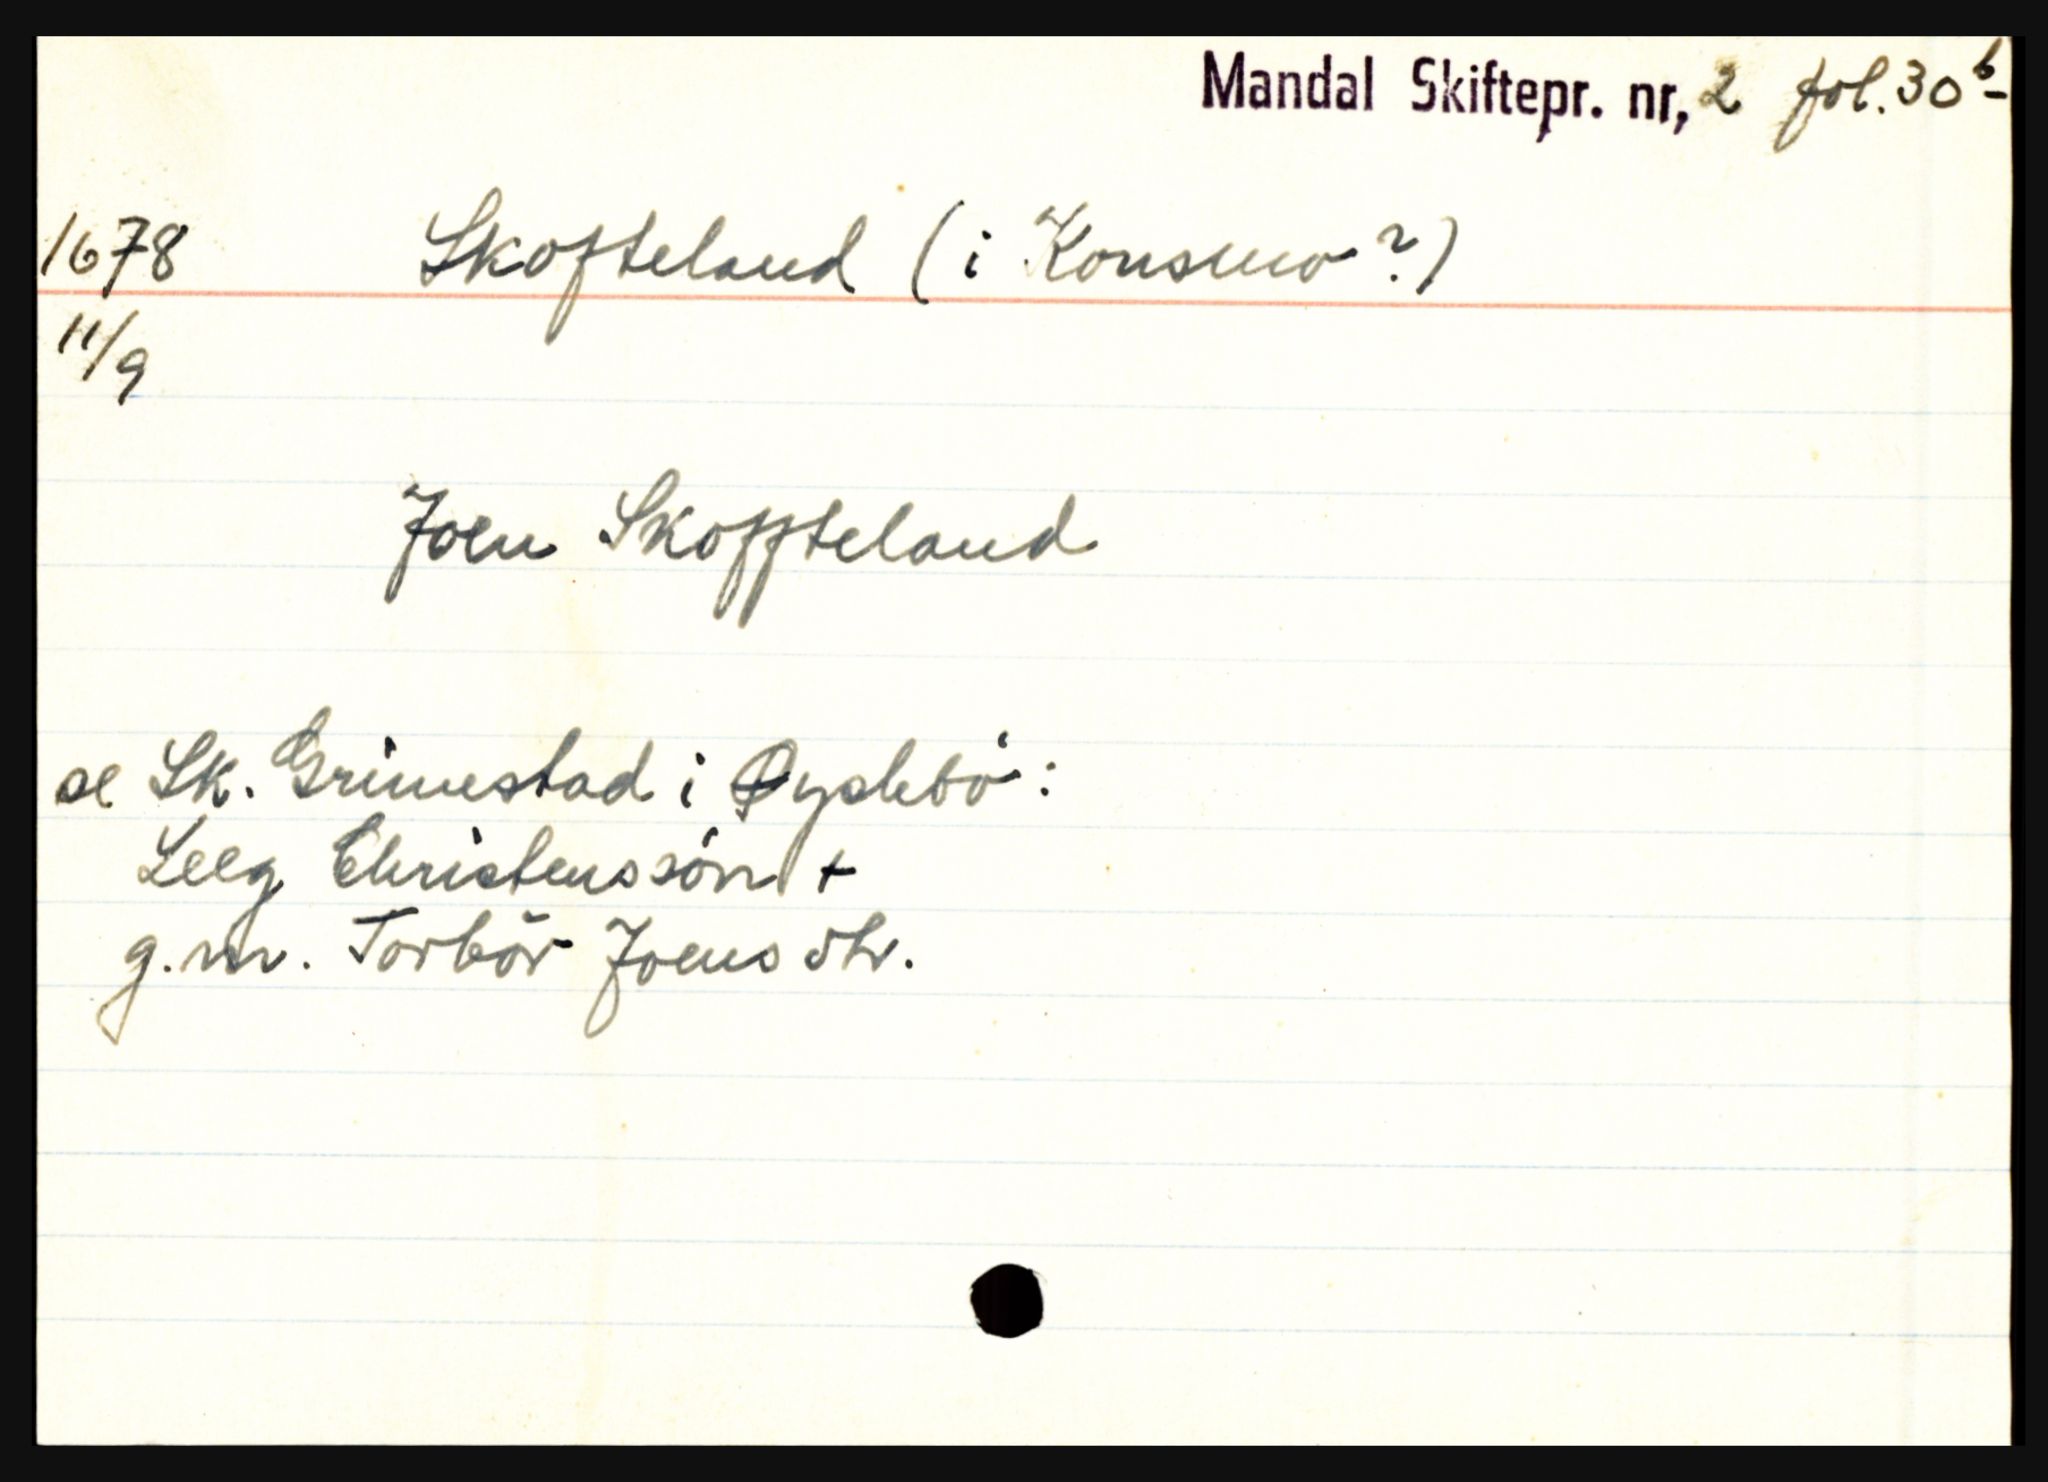 Mandal Skiftepr. nr, 2 fol. 30 b
1678 Skofteland (i Konsmo?)
11/9
Joen Skoffteland
se Sk. Grimestad i Øyslebö:
Leeg Christenssön +
g.m. Torbör Joensdtr.